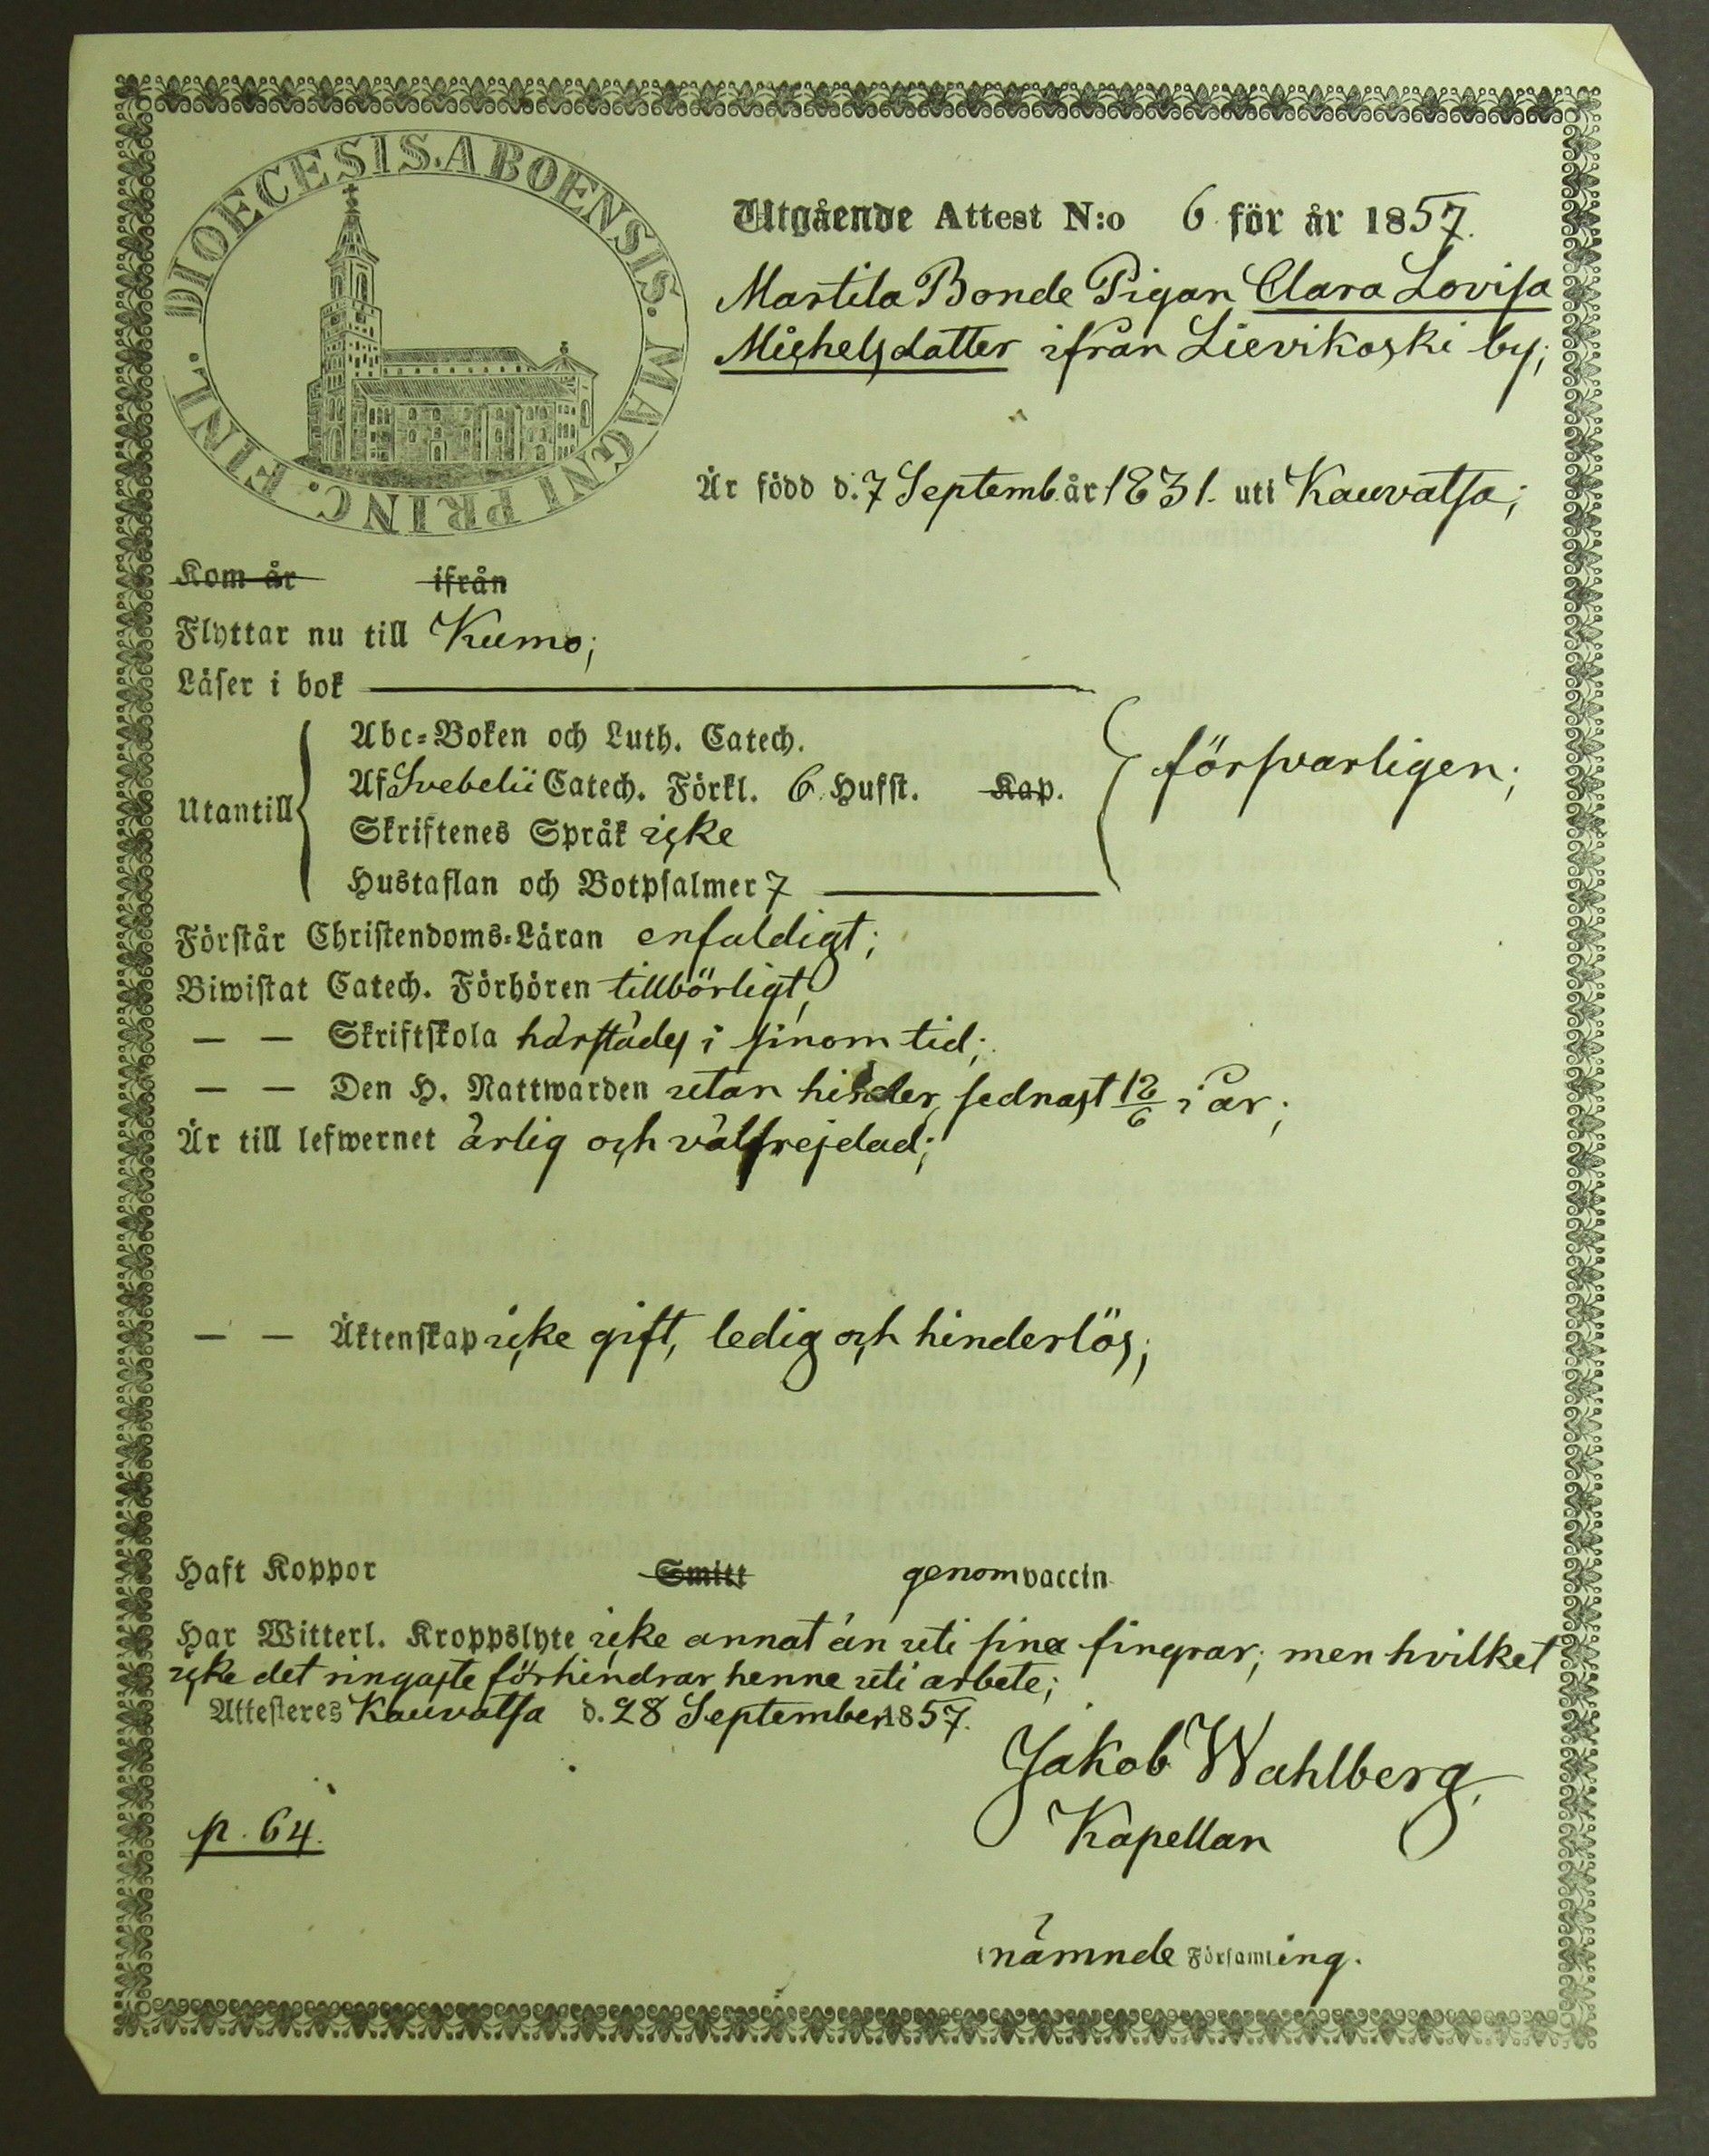 DIOECESIS. ABOENSIS. MAGNI PRINC. FINL.
Utgående Attest N:o 6 för år 1857.
Martila Bonde Pigan Clara Lovisa
Michelsdotter ifrån Lievikoski by;
Är född d. 7 Septemb. år 1831. uti Kauvatsa;
Kom år ifrån
Flyttar nu till Kumo;
Läser i bok
Abc-Boken och Luth. Catech.
Af Svebelii Catech. Förkl. 6 Hufst. Kap. försvarligen;
Utantill
Skriftenes Språk icke
Hustaflan och Botpsalmer 7
Förstår Christendoms-Läran enfaldigt;
Biwistat Catech. Förhören tillbörligt,
— — Skriftskola härstädes i sinom tid;
— — Den H. Nattwarden utan hinder, sednast 12/6 i år;
Är till lefwernet ärlig och välfrejdad;
— — Äktenskap icke gift, ledig och hinderlös;
Haft Koppor Smitt genom vaccin
Har Witterl. Kroppslyte icke annat än uti sina fingrar; men hvilket
icke det ringaste förhindrar henne uti arbete;
Attesteres Kauvatsa d. 28 September 1857.
Jakob Wahlberg,
Kapellan
p. 64.
i nämnde Församling.